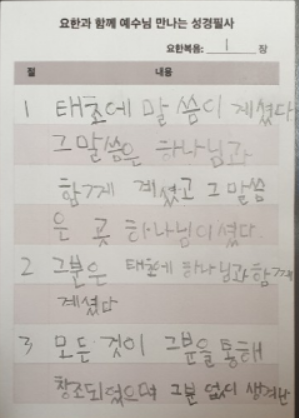 요한과 함께 예수님 만나는 성경필사
요한복음: 1 장
절 내용
1 태초에 말씀이 계셨다
그 말씀은 하나님과
함께 계셨고 그 말씀
은 곧 하나님이셨다.
2 그분은 태초에 하나님과 함께
계셨다
3 모든 것이 그분을 통해
창조되었으며 그분 없이 생겨난